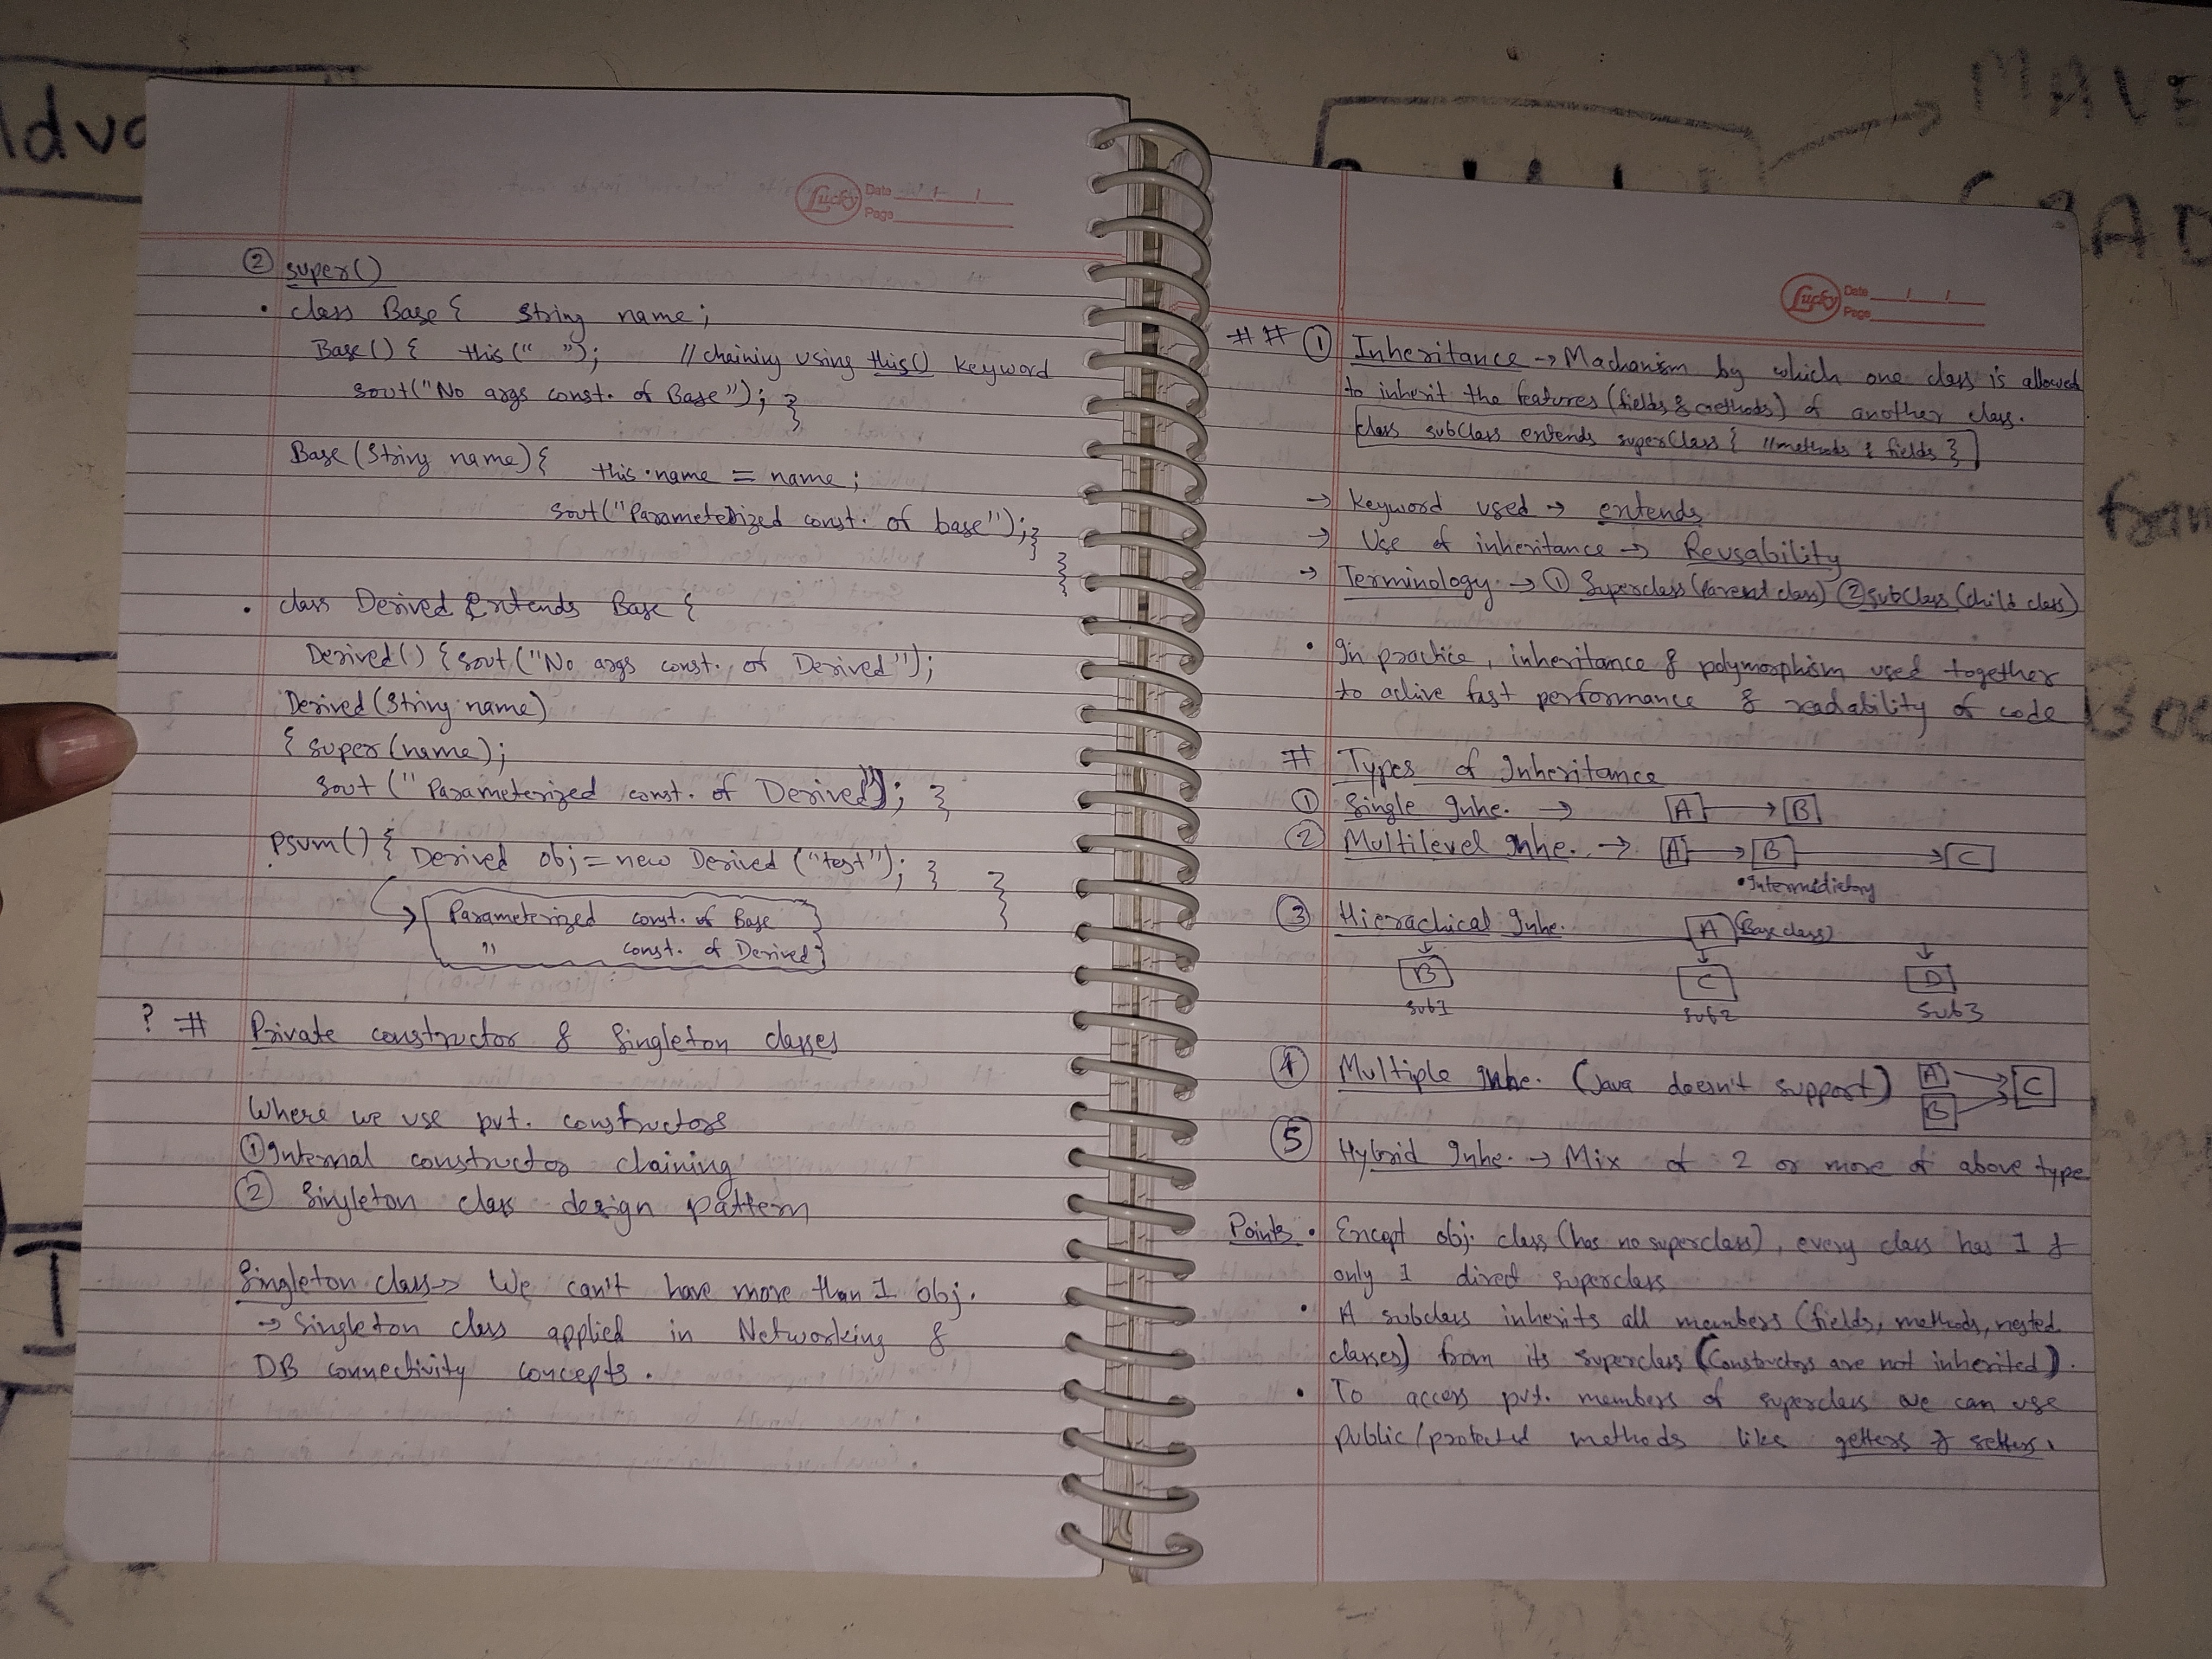 Lucky Date / /
Page
② super()
• class Base { String name;
Base() { this(" "); // chaining using this() keyword
sout("No args const. of Base"); }
Base(String name){ this.name = name;
sout("Parameterized const. of base"); }
}
• class Derived Extends Base {
Derived() { sout("No args const. of Derived");
Derived(String name)
{ super(name);
sout ("Parameterized const. of Derived"); }
psvm() { Derived obj = new Derived ("test"); } }
Parameterized const. of Base
" const. of Derived
? # Private constructor & Singleton classes
Where we use pvt. constructors
① Internal constructor chaining
② Singleton class design pattern
Singleton class → We can't have more than 1 obj.
→ Singleton class applied in Networking &
DB connectivity concepts.
Lucky Date / /
Page
## ① Inheritance → Machanism by which one class is allowed
to inherit the features (fields & methods) of another class.
class subClass extends superClass { //methods & fields }
→ Keyword used → extends
→ Use of inheritance → Reusability
→ Terminology → ① Superclass (Parent class) ② SubClass (child class)
• In practice, inheritance & polymorphism used together
to achive fast performance & readability of code
# Types of Inheritance
① Single Inhe. → A → B
② Multilevel Inhe. → A → B → C
• Intermedietory
③ Hierachical Inhe. A (Base class)
B C D
Sub1 Sub2 Sub3
④ Multiple Inhe. (Java doesn't support) A B C
⑤ Hybrid Inhe. → Mix of 2 or more of above type
Points • Except obj. class (has no superclass), every class has 1 &
only 1 direct superclass
• A subclass inherits all members (fields, methods, nested
classes) from its superclass (Constructors are not inherited).
• To access pvt. members of superclass we can use
public/protected methods like getters & setters.